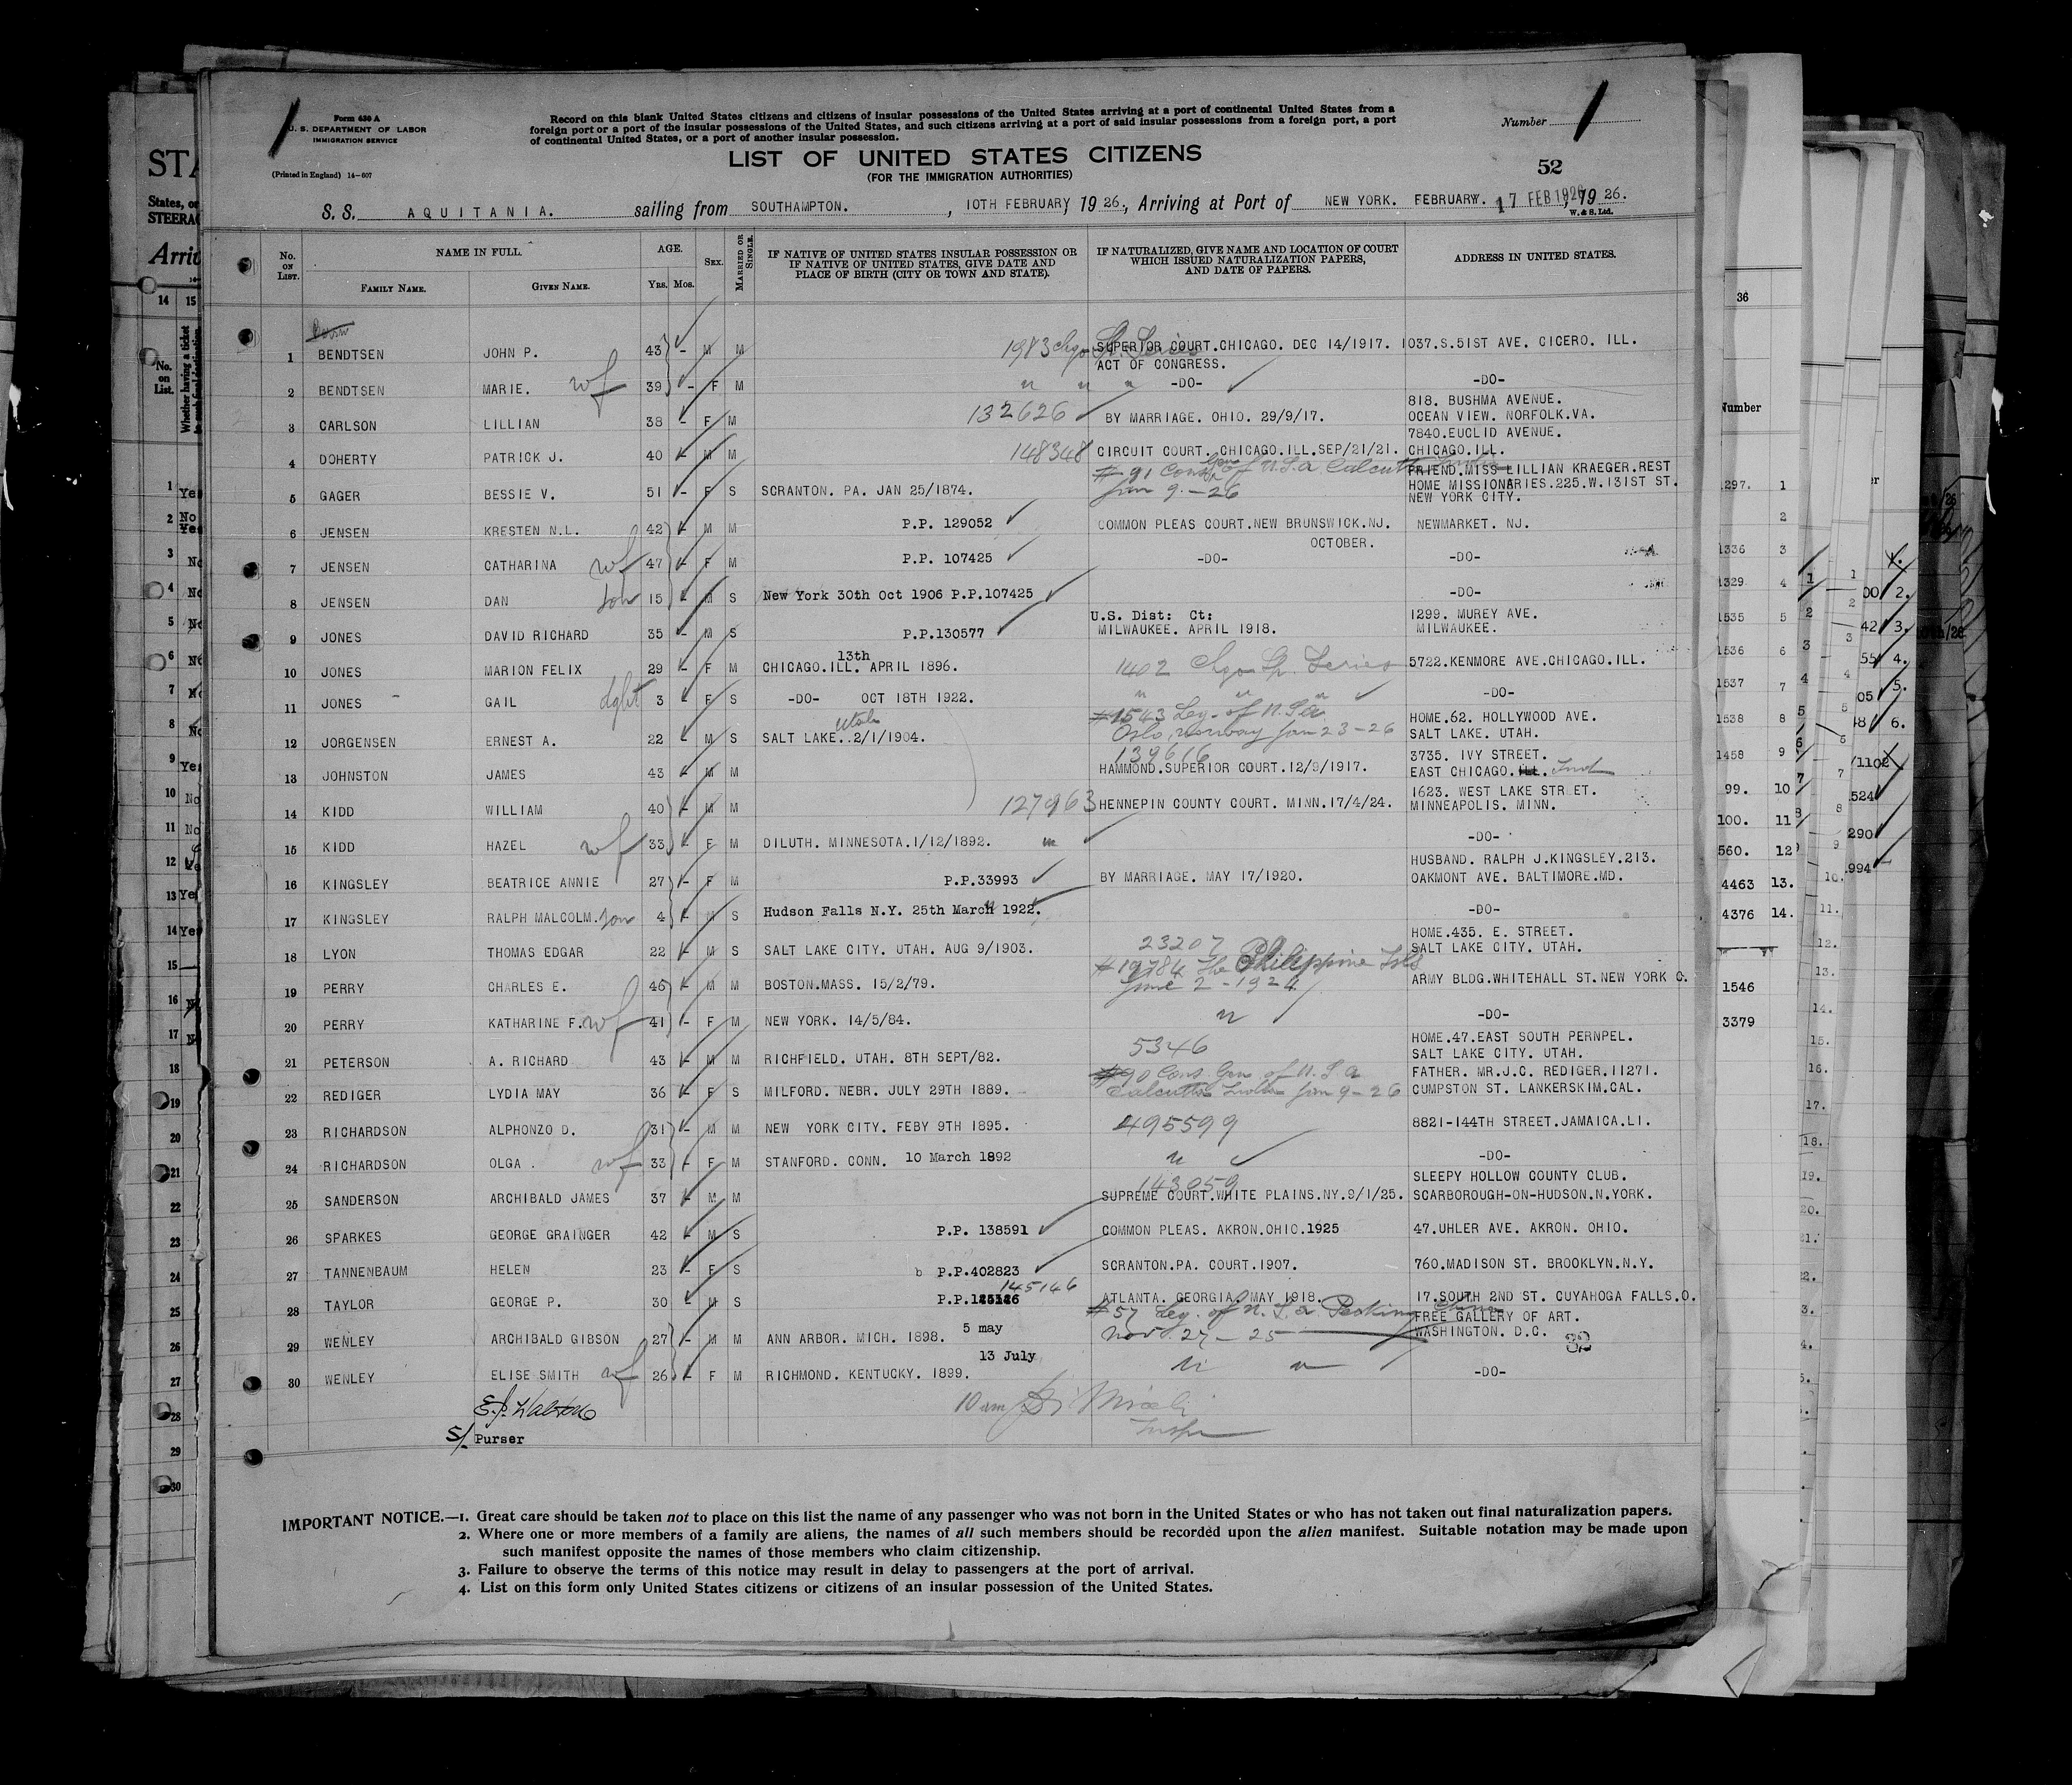 Form 630 A
U. S. DEPARTMENT OF LABOR
IMMIGRATION SERVICE
(Printed in England) 14-607
Record on this blank United States citizens and citizens of insular possessions of the United States arriving at a port of continental United States from a
foreign port or a port of the insular possessions of the United States, and such citizens arriving at a port of said insular possessions from a foreign port, a port
of continental United States, or a port of another insular possession.
Number
LIST OF UNITED STATES CITIZENS
(FOR THE IMMIGRATION AUTHORITIES)
52
S. S. AQUITANIA. sailing from SOUTHAMPTON. , 10TH FEBRUARY 19 26., Arriving at Port of NEW YORK. FEBRUARY. 17 FEB 1926, 19 26.
W. & S. Ltd.
No. ON LIST. NAME IN FULL. AGE. SEX. MARRIED OR SINGLE. IF NATIVE OF UNITED STATES INSULAR POSSESSION OR IF NATIVE OF UNITED STATES, GIVE DATE AND PLACE OF BIRTH (CITY OR TOWN AND STATE). IF NATURALIZED, GIVE NAME AND LOCATION OF COURT WHICH ISSUED NATURALIZATION PAPERS, AND DATE OF PAPERS. ADDRESS IN UNITED STATES.
FAMILY NAME. GIVEN NAME. YRS. MOS.
1 BENDTSEN JOHN P. 43 - M M 1983 Chgo Sp. Series SUPERIOR COURT.CHICAGO. DEC 14/1917. 1037.S.51ST AVE. CICERO. ILL.
ACT OF CONGRESS.
2 BENDTSEN MARIE. wf 39 - F M " " " -DO- -DO-
818. BUSHMA AVENUE.
3 CARLSON LILLIAN 38 - F M 132626 BY MARRIAGE. OHIO. 29/9/17. OCEAN VIEW. NORFOLK.VA.
7840.EUCLID AVENUE.
4 DOHERTY PATRICK J. 40 - M M 148348 CIRCUIT COURT. CHICAGO.ILL.SEP/21/21. CHICAGO.ILL.
# 91 Cons Gen of U.S.A. Calcutta FRIEND.MISS LILLIAN KRAEGER.REST
5 GAGER BESSIE V. 51 - F S SCRANTON. PA. JAN 25/1874. Jan 9.-26 HOME MISSIONARIES.225.W.131ST ST.
NEW YORK CITY.
6 JENSEN KRESTEN N.L. 42 - M M P.P. 129052 COMMON PLEAS COURT.NEW BRUNSWICK.NJ. NEWMARKET. NJ.
OCTOBER.
7 JENSEN CATHARINA wf 47 - F M P.P. 107425 -DO- -DO-
8 JENSEN DAN son 15 - M S New York 30th Oct 1906 P.P.107425 -DO-
U.S. Dist: Ct: 1299. MUREY AVE.
9 JONES DAVID RICHARD 35 - M S P.P.130577 MILWAUKEE. APRIL 1918. MILWAUKEE.
13th
10 JONES MARION FELIX 29 - F M CHICAGO.ILL. APRIL 1896. 1402 Chgo Sp. Series 5722.KENMORE AVE.CHICAGO.ILL.
11 JONES GAIL dght 3 - F S -DO- OCT 18TH 1922. " " " -DO-
Utah #1543 Leg. of U.S.A. HOME.62. HOLLYWOOD AVE.
12 JORGENSEN ERNEST A. 22 - M S SALT LAKE. 2/1/1904. Oslo, Norway Jan 23-26 SALT LAKE. UTAH.
139616 3735. IVY STREET.
13 JOHNSTON JAMES 43 - M M HAMMOND.SUPERIOR COURT.12/9/1917. EAST CHICAGO. Ind
1623. WEST LAKE STREET.
14 KIDD WILLIAM 40 - M M 127963 HENNEPIN COUNTY COURT. MINN.17/4/24. MINNEAPOLIS. MINN.
15 KIDD HAZEL wf 33 - F M DILUTH. MINNESOTA.1/12/1892. " -DO-
HUSBAND. RALPH J.KINGSLEY.213.
16 KINGSLEY BEATRICE ANNIE 27 - F M P.P.33993 BY MARRIAGE. MAY 17/1920. OAKMONT AVE. BALTIMORE.MD.
17 KINGSLEY RALPH MALCOLM. son 4 - M S Hudson Falls N.Y. 25th March 1922. -DO-
23207 HOME.435. E. STREET.
18 LYON THOMAS EDGAR 22 - M S SALT LAKE CITY. UTAH. AUG 9/1903. SALT LAKE CITY. UTAH.
#19784 The Philippine Isls
19 PERRY CHARLES E. 46 - M M BOSTON.MASS. 15/2/79. June 2-1924 ARMY BLDG.WHITEHALL ST.NEW YORK C.
20 PERRY KATHARINE F. wf 41 - F M NEW YORK. 14/5/84. " -DO-
5346 HOME.47.EAST SOUTH PERNPEL.
21 PETERSON A. RICHARD 43 - M M RICHFIELD. UTAH. 8TH SEPT/82. SALT LAKE CITY. UTAH.
#90 Cons Gen of U.S.A FATHER. MR.J.C. REDIGER.11271.
22 REDIGER LYDIA MAY 36 - F S MILFORD. NEBR. JULY 29TH 1889. Calcutta India Jan 9-26 CUMPSTON ST. LANKERSKIM.CAL.
23 RICHARDSON ALPHONZO D. 31 - M M NEW YORK CITY. FEBY 9TH 1895. 495599 8821-144TH STREET.JAMAICA.LI.
24 RICHARDSON OLGA . wf 33 - F M STANFORD. CONN. 10 March 1892 " -DO-
143059 SLEEPY HOLLOW COUNTY CLUB.
25 SANDERSON ARCHIBALD JAMES 37 - M M SUPREME COURT.WHITE PLAINS.NY.9/1/25. SCARBOROUGH-ON-HUDSON.N.YORK.
26 SPARKES GEORGE GRAINGER 42 - M S P.P. 138591 COMMON PLEAS. AKRON.OHIO.1925 47.UHLER AVE. AKRON. OHIO.
27 TANNENBAUM HELEN 23 - F S P.P.402823 SCRANTON.PA. COURT.1907. 760.MADISON ST. BROOKLYN.N.Y.
145146
28 TAYLOR GEORGE P. 30 - M S P.P. ATLANTA. GEORGIA. MAY 1918. 17.SOUTH 2ND ST. CUYAHOGA FALLS.O.
#57 Leg. of U.S.A Peking China FREE GALLERY OF ART.
29 WENLEY ARCHIBALD GIBSON 27 - M M ANN ARBOR. MICH. 1898. 5 may Nov. 27-25 WASHINGTON. D.C. 32
13 July
30 WENLEY ELISE SMITH wf 26 - F M RICHMOND. KENTUCKY. 1899. " " -DO-
10 am
S/. Purser Insp
IMPORTANT NOTICE.—1. Great care should be taken not to place on this list the name of any passenger who was not born in the United States or who has not taken out final naturalization papers.
2. Where one or more members of a family are aliens, the names of all such members should be recorded upon the alien manifest. Suitable notation may be made upon
such manifest opposite the names of those members who claim citizenship.
3. Failure to observe the terms of this notice may result in delay to passengers at the port of arrival.
4. List on this form only United States citizens or citizens of an insular possession of the United States.